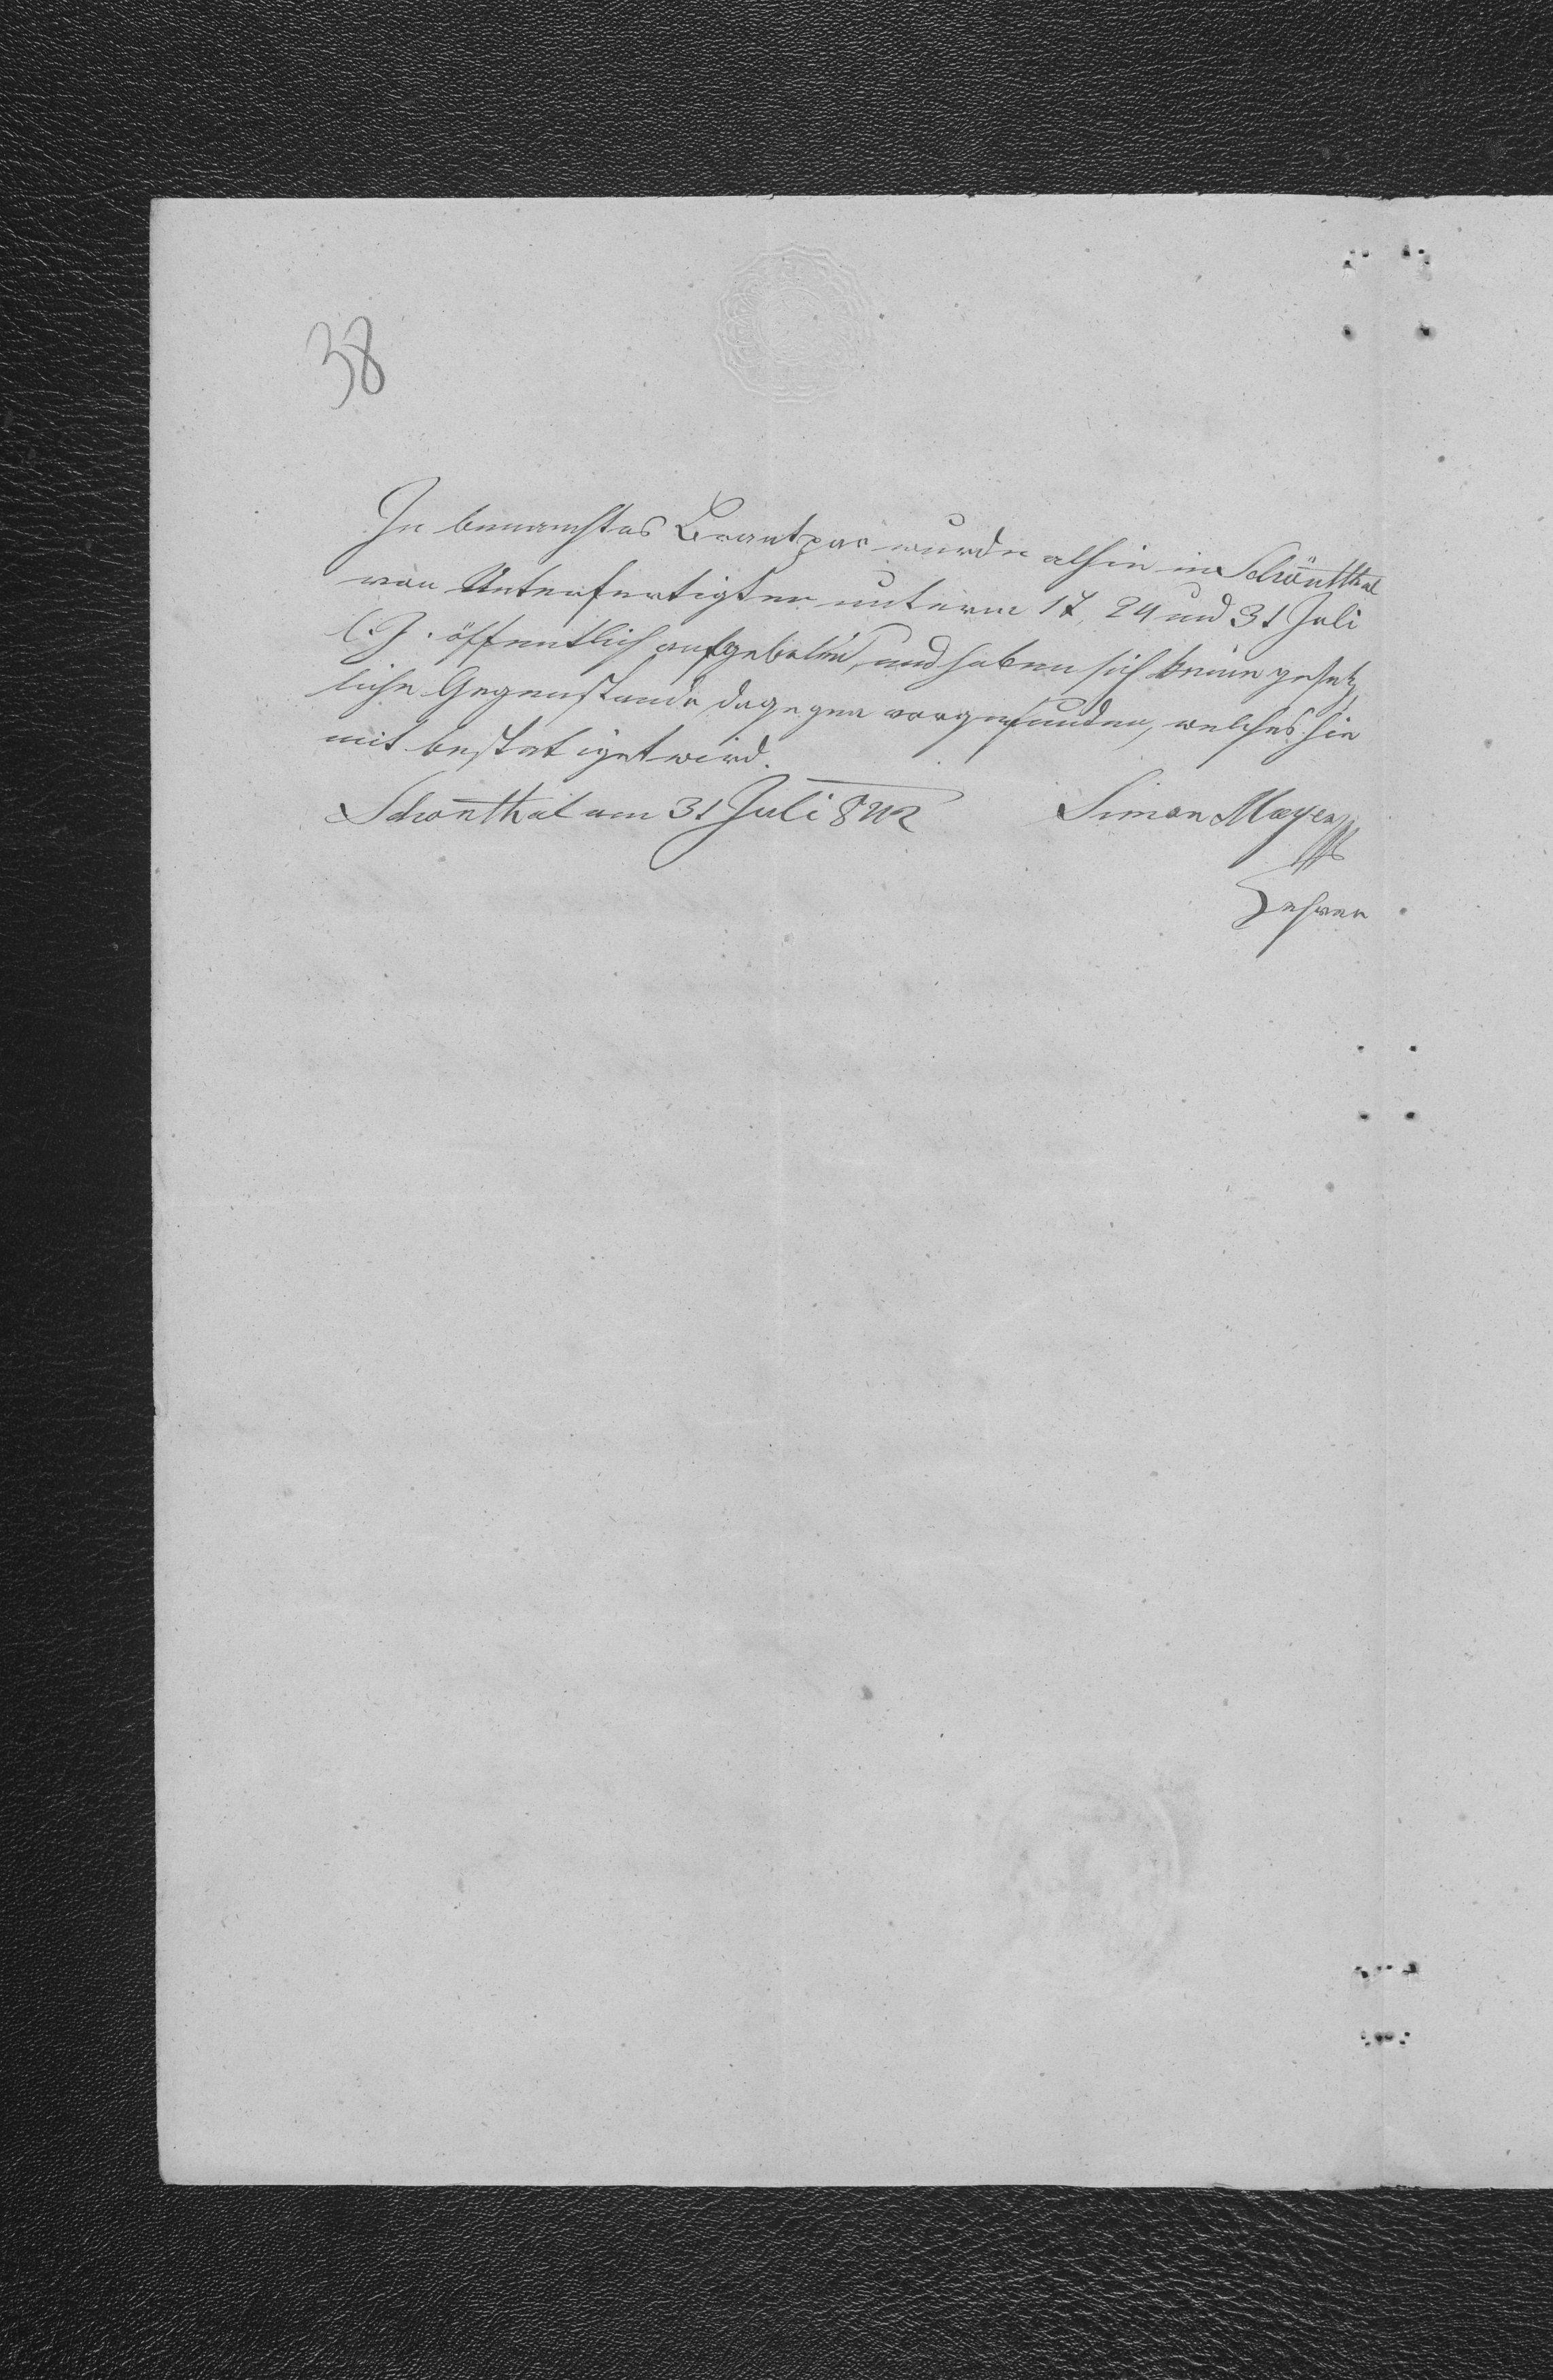 38
In benanstes Brautpar wurde alhir in Schönthal
von Unterfertigten unterm 17, 24 und 31 Juli
l. J. öffentlich aufgeboten, und haben sich keine gesetz
liche Gegenstande dagegen vorgefunden, welches hie
mit bestatiget wird.
Schonthal am 31 Juli 842 Simon Mayer
Lehrer